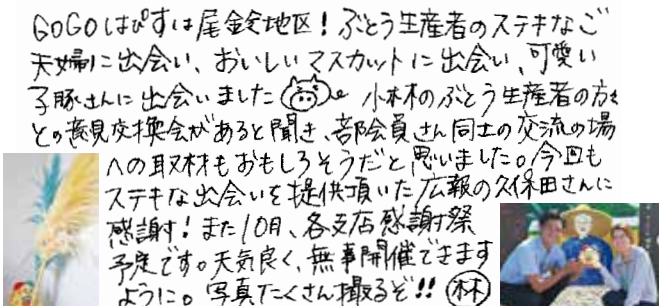 GOGOはぴすは尾鈴地区！ぶどう生産者のステキなご
夫婦に出会い、おいしいマスカットに出会い、可愛い
子豚さんに出会いました 小林のぶどう生産者の方々
との意見交換会があると聞き、部会員さん同士の交流の場
への取材もおもしろそうだと思いました。今回も
ステキな出会いを提供頂いた広報の久保田さんに
感謝！また10月、各支店感謝祭
予定です。天気良く、無事開催できます
ように。写真たくさん撮るぞ!! 林